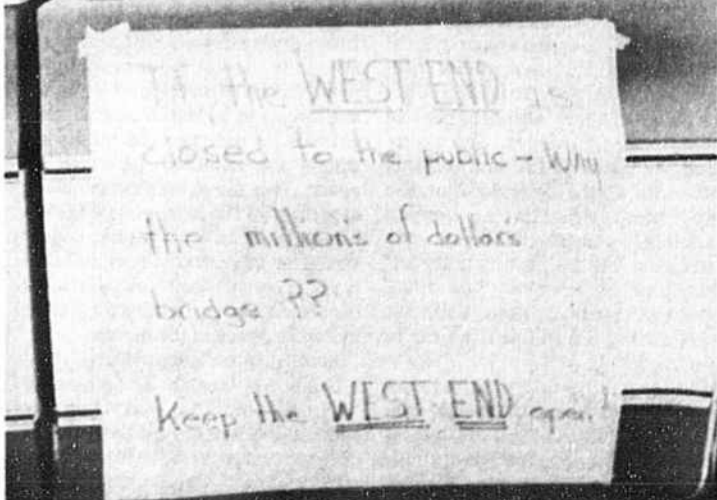 If the WEST END is
closed to the public - Why
the millions of dollars
bridge ??
Keep the WEST END open!